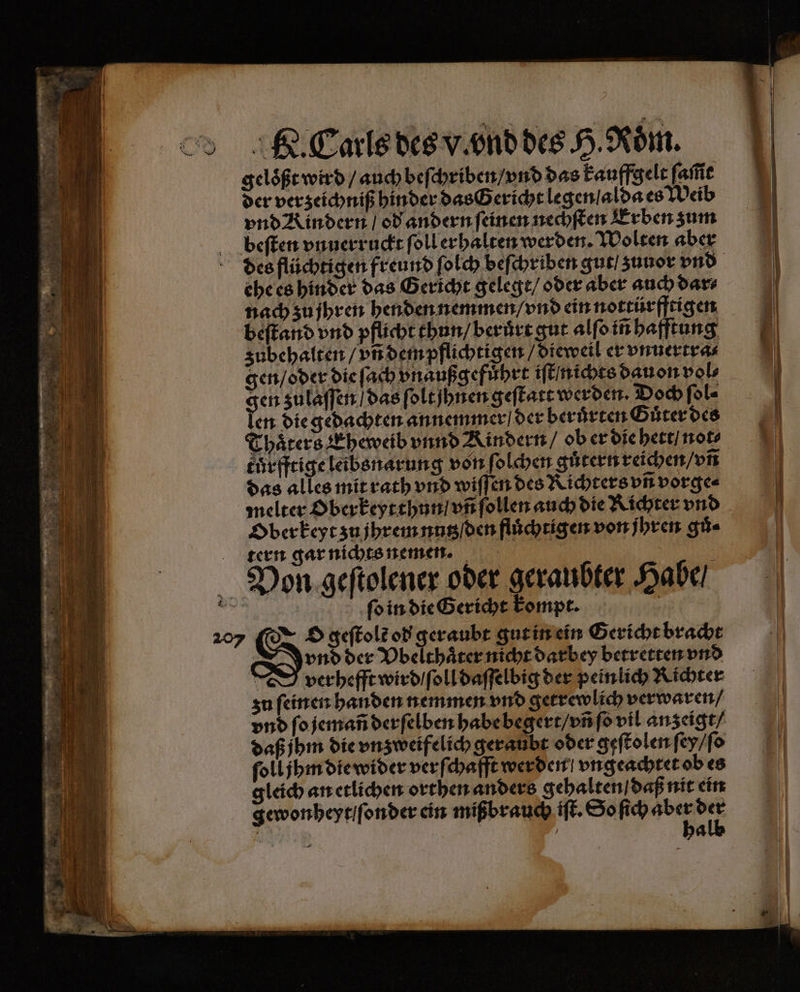 K. Carls des v. vnd des H. Röm.
gelößt wird / auch beschriben/vnd das kauffgelt sam̃t
der verzeichniß hinder das Gericht legen/alda es Weib
vnd Kindern / od andern seinen nechsten Erben zum
besten vnuerruckt soll erhalten werden. Wolten aber
des flüchtigen freund solch beschriben gut/ zuuor vnd
ehe es hinder das Gericht gelegt/ oder aber auch dar⸗
nach zu jhren henden nemmen/vnd ein nottürfftigen
bestand vnd pflicht thun/ berürt gut also iñ hafftung
zubehalten / vñ dem pflichtigen / dieweil er vnuertra⸗
gen/oder die sach vnaußgeführt ist/nichts dauon vol⸗
gen zulassen / das solt jhnen gestatt werden. Doch sol⸗
len die gedachten annemmer/ der berürten Güter des
Thäters Eheweib vnnd Kindern / ob er die hett/ not⸗
türfftige leibsnarung von solchen gütern reichen/vñ
das alles mit rath vnd wissen des Richters vñ vorge⸗
melter Oberkeyt thun/ vñ sollen auch die Richter vnd
Oberkeyt zu jhrem nutz/den flüchtigen von jhren gü⸗
tern gar nichts nemen.
Von gestolener oder geraubter Habe/
so in die Gericht kompt.
207 SO gestolẽ od geraubt gut in ein Gericht bracht
vnd der Vbelthäter nicht darbey betretten vnd
verhefft wird/soll dasselbig der peinlich Richter
zu seinen handen nemmen vnd getrewlich verwaren/
vnd so jemañ derselben habe begert/vñ so vil anzeigt/
daß jhm die vnzweifelich geraubt oder gestolen sey/so
soll jhm die wider verschafft werden/ vngeachtet ob es
gleich an etlichen orthen anders gehalten/daß nit ein
gewonheyt/sonder ein mißbrauch ist. So sich aber der
halb